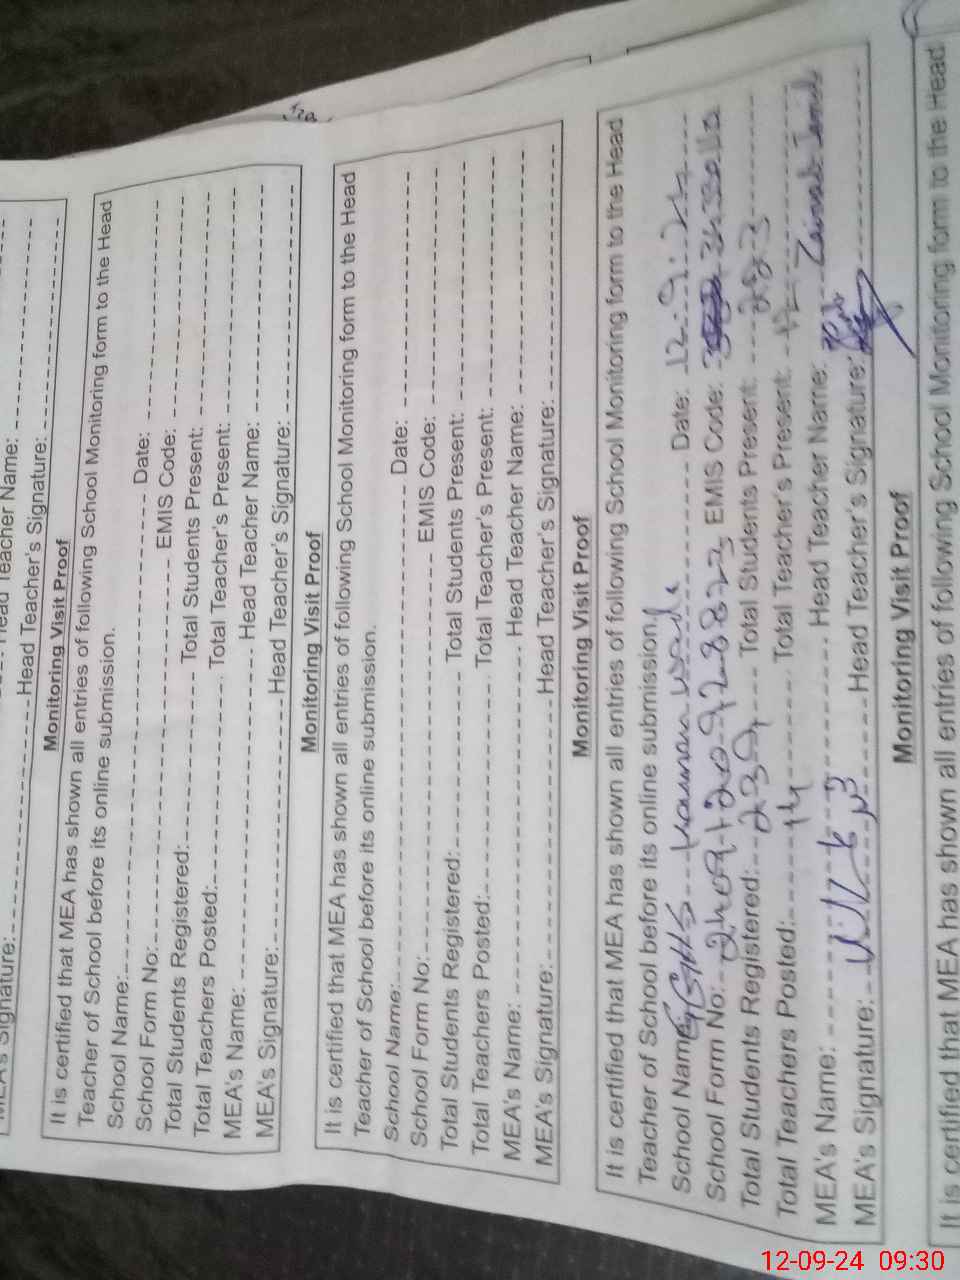 Head Teacher Name:
MEA's Signature: Head Teacher's Signature:
Monitoring Visit Proof
It is certified that MEA has shown all entries of following School Monitoring form to the Head
Teacher of School before its online submission.
School Name: Date:
School Form No: EMIS Code:
Total Students Registered: Total Students Present:
Total Teachers Posted: Total Teacher's Present:
MEA's Name: Head Teacher Name:
MEA's Signature: Head Teacher's Signature:
Monitoring Visit Proof
It is certified that MEA has shown all entries of following School Monitoring form to the Head
Teacher of School before its online submission.
School Name: Date:
School Form No: EMIS Code:
Total Students Registered: Total Students Present:
Total Teachers Posted: Total Teacher's Present:
MEA's Name: Head Teacher Name:
MEA's Signature: Head Teacher's Signature:
Monitoring Visit Proof
It is certified that MEA has shown all entries of following School Monitoring form to the Head
Teacher of School before its online submission.
School Name: GGHS Date: 12.9.24
School Form No: EMIS Code:
Total Students Registered: 239 Total Students Present: 223
Total Teachers Posted: 14 Total Teacher's Present: 12
MEA's Name: Head Teacher Name: Zainab
MEA's Signature: Head Teacher's Signature:
Monitoring Visit Proof
It is certified that MEA has shown all entries of following School Monitoring form to the Head
12-09-24 09:30